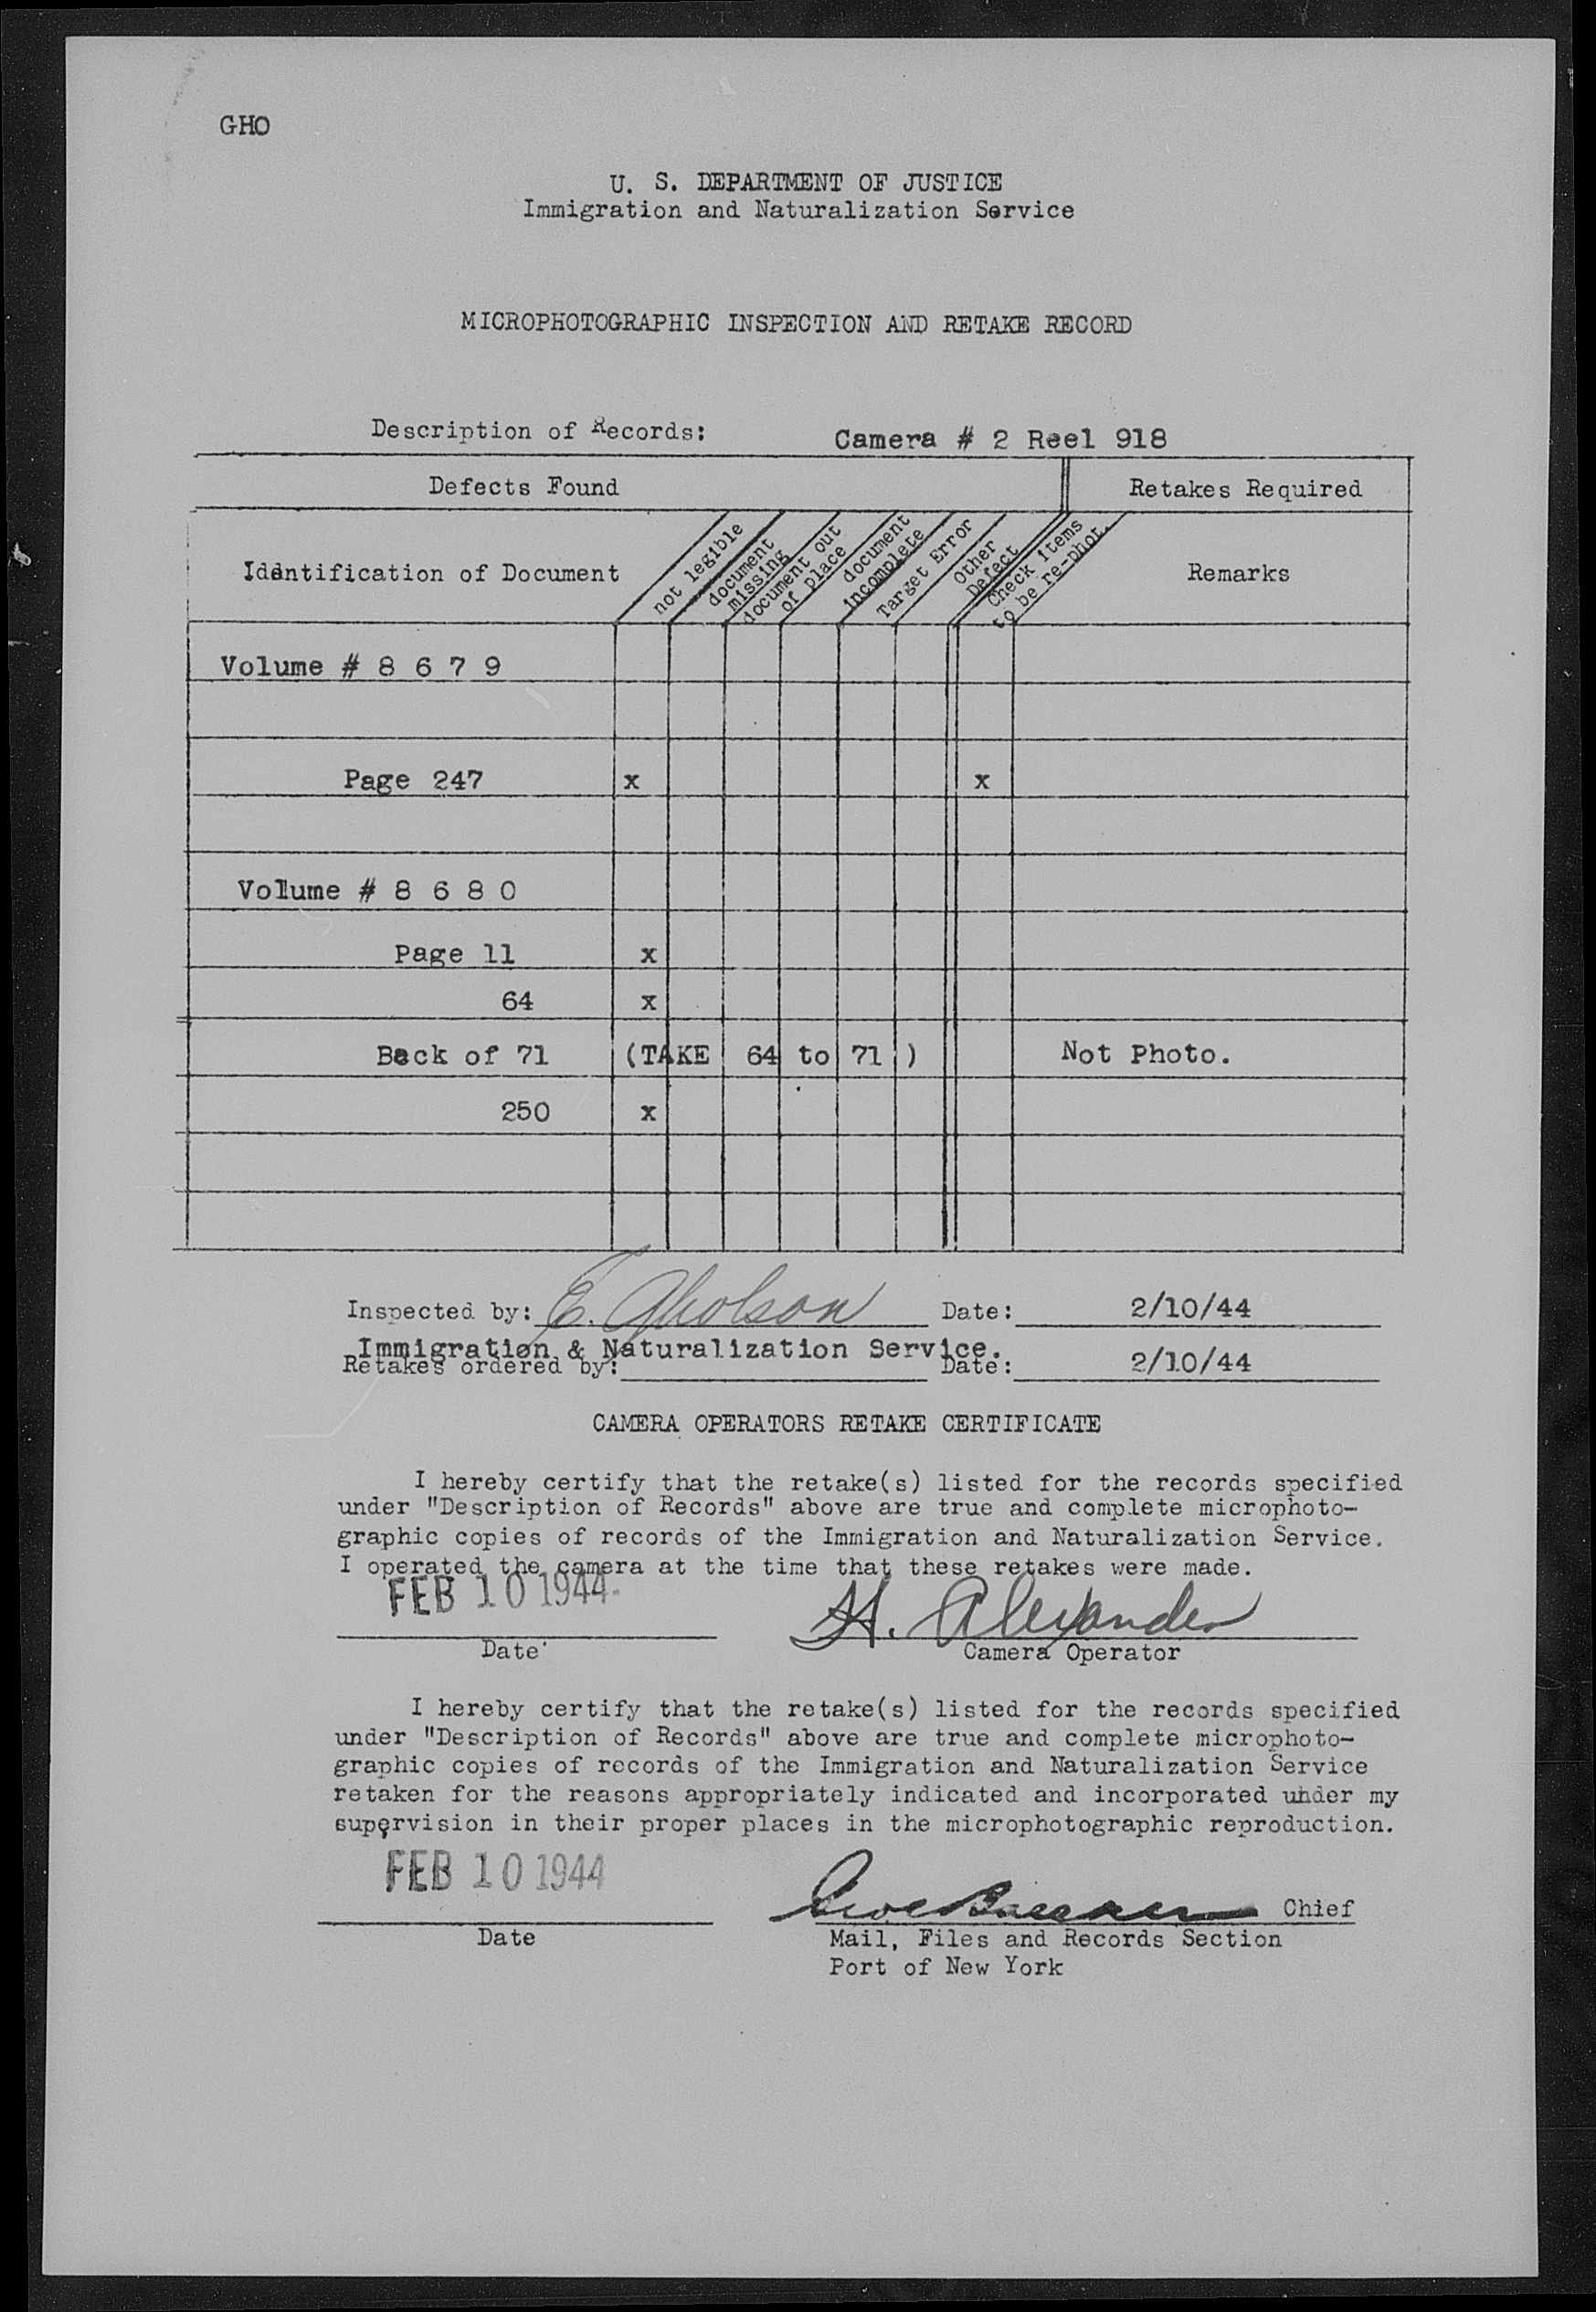 GHO
U. S. DEPARTMENT OF JUSTICE
Immigration and Naturalization Service
MICROPHOTOGRAPHIC INSPECTION AND RETAKE RECORD
Description of Records: Camera # 2 Reel 918
Defects Found Retakes Required
Identification of Document
not legible
document missing
document out of place
document incomplete
Target Error
Other Defect
Check items to be re-phot.
Remarks
Volume # 8 6 7 9
Page 247 x x
Volume # 8 6 8 0
Page 11 x
64 x
Back of 71 (TAKE 64 to 71 ) Not Photo.
250 x
Inspected by: E. Gholson Date: 2/10/44
Immigration & Naturalization Service.
Retakes ordered by: Date: 2/10/44
CAMERA OPERATORS RETAKE CERTIFICATE
I hereby certify that the retake(s) listed for the records specified
under "Description of Records" above are true and complete microphoto-
graphic copies of records of the Immigration and Naturalization Service.
I operated the camera at the time that these retakes were made.
FEB 10 1944
H. Alexander
Date Camera Operator
I hereby certify that the retake(s) listed for the records specified
under "Description of Records" above are true and complete microphoto-
graphic copies of records of the Immigration and Naturalization Service
retaken for the reasons appropriately indicated and incorporated under my
supervision in their proper places in the microphotographic reproduction.
FEB 10 1944
Chief
Date Mail, Files and Records Section
Port of New York